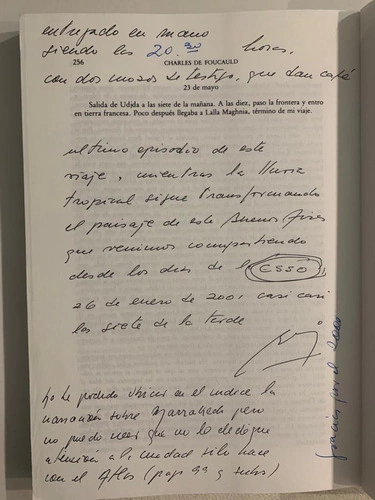 entregado en mano
siendo las 20.30 horas,
256 CHARLES DE FOUCAULD
con dos mozos de testigo, que dan café
23 de mayo
Salida de Udjda a las siete de la mañana. A las diez, paso la frontera y entro
en tierra francesa. Poco después llegaba a Lalla Maghnia, término de mi viaje.
ultimo episodio de este
viaje, mientras la lluvia
tropical sigue transformando
el paisaje de este Buenos Aires
que venimos compartiendo
desde los dias de la ESSO
26 de enero de 2001 casi casi
las siete de la tarde
gracias por el
No he podido ubicar en el indice la
narración sobre Marrakech pero
no puedo creer que no le dedique
atención a la ciudad si lo hace
con el Atlas (pags 99 y subs)